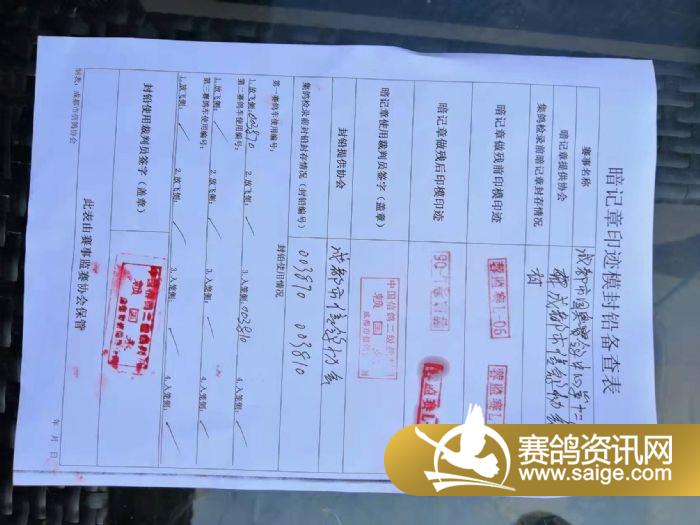 暗记章印迹模封铅备查表
赛事名称
暗记章提供协会
成都市信鸽协会
集鸽检录前暗记章封存情况
暗记章做残前印模印迹
蓉监赛1-05
蓉监赛1
暗记章做残后印模印迹
暗记章使用裁判员签字（盖章）
中国信鸽三级
封铅提供协会
成都市信鸽协会
集鸽检录前封铅封存情况（封铅编号）
003810 003810
封铅使用情况
第一赛鸽车使用编号：
1.放飞侧：003810 2.放飞侧： 3.入笼侧：003810 4.入笼侧：
第二赛鸽车使用编号：
1.放飞侧： 2.放飞侧： 3.入笼侧： 4.入笼侧：
第三赛鸽车使用编号：
1.放飞侧： 2.放飞侧： 3.入笼侧： 4.入笼侧：
封铅使用裁判员签字（盖章）
年 月 日
制表：成都市信鸽协会
此表由赛事监赛协会保管
赛鸽资讯网
www.saige.com